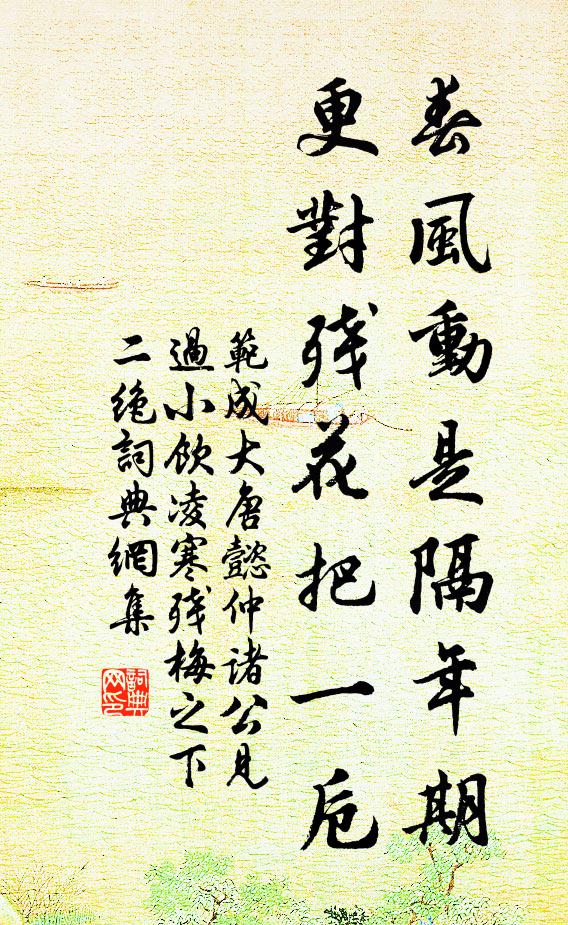 春風動是隔年期
更對殘花把一卮
範成大唐懿仲諸公見
過小飲凌寒殘梅之下
二絶詞典網集
詞典网印